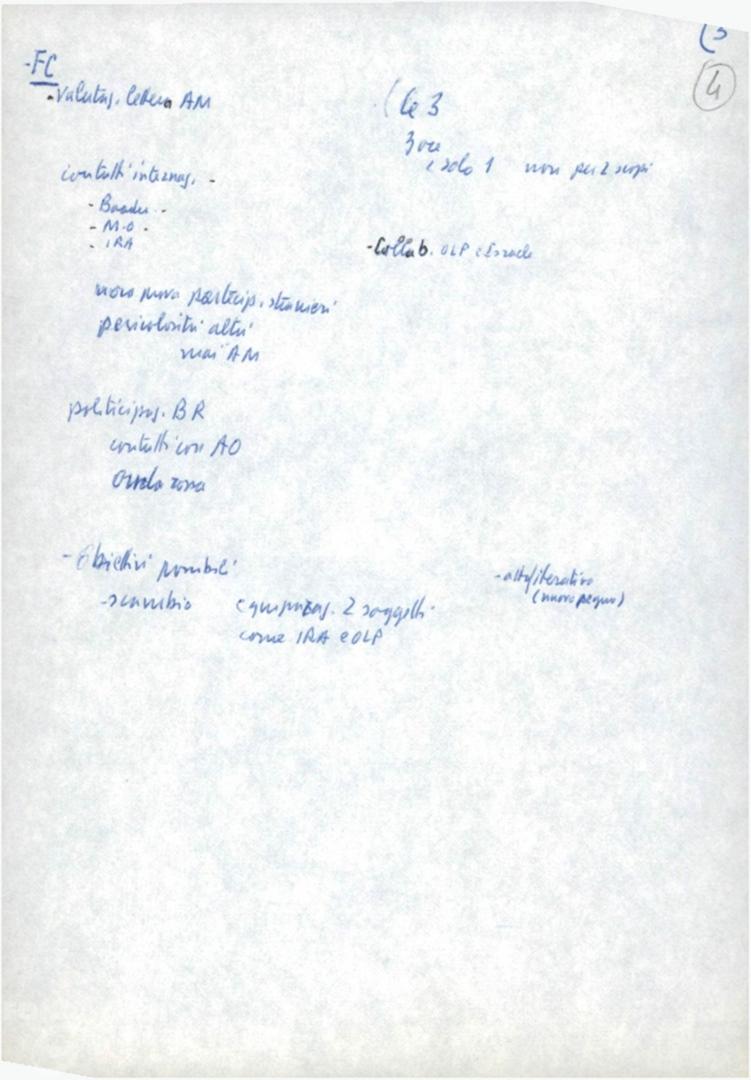 (3
4
-FC
- valutaz. lettera AM
( le 3
3 ore
e solo 1 non per 2 scopi
contatti internaz. -
- Baader -
- M.O -
- IRA
- Collab. OLP e Israele
partecip. stranieri
pericolosità altri
mai AM
BR
contatti con AO
Onda rossa
- Obiettivi possibili
- scambio equiparaz. 2 soggetti
come IRA e OLP
(nuovo pegno)